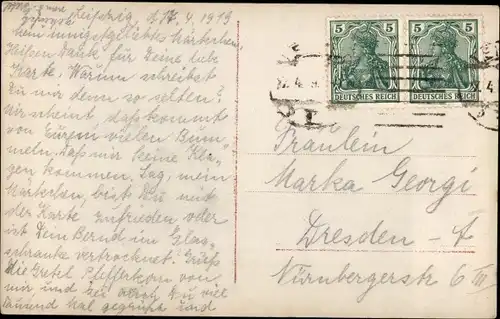 Leipzig, d. 17. 4. 1919
Mein innigstgeliebtes Märkchen,
Heißen Dank für Deine liebe
Karte. Warum schreibst
Du mir denn so selten?
Mir scheint, dass kommt
von Eurem vielen Bum-
meln. Daß mir keine Kla-
gen kommen. Sag, mein
Markchen, bist Du mit
der Karte zufrieden oder
ist Dein Bernd im Glas-
schranke vertrocknet. Grüß
die Gretel Pfefferkorn von
mir und sei Du viel
tausend Mal gegrüßt und
5 5 5 5
DEUTSCHES REICH DEUTSCHES REICH
Fräulein
Marka Georgi
Dresden - A
Nürnbergerstr 6 III